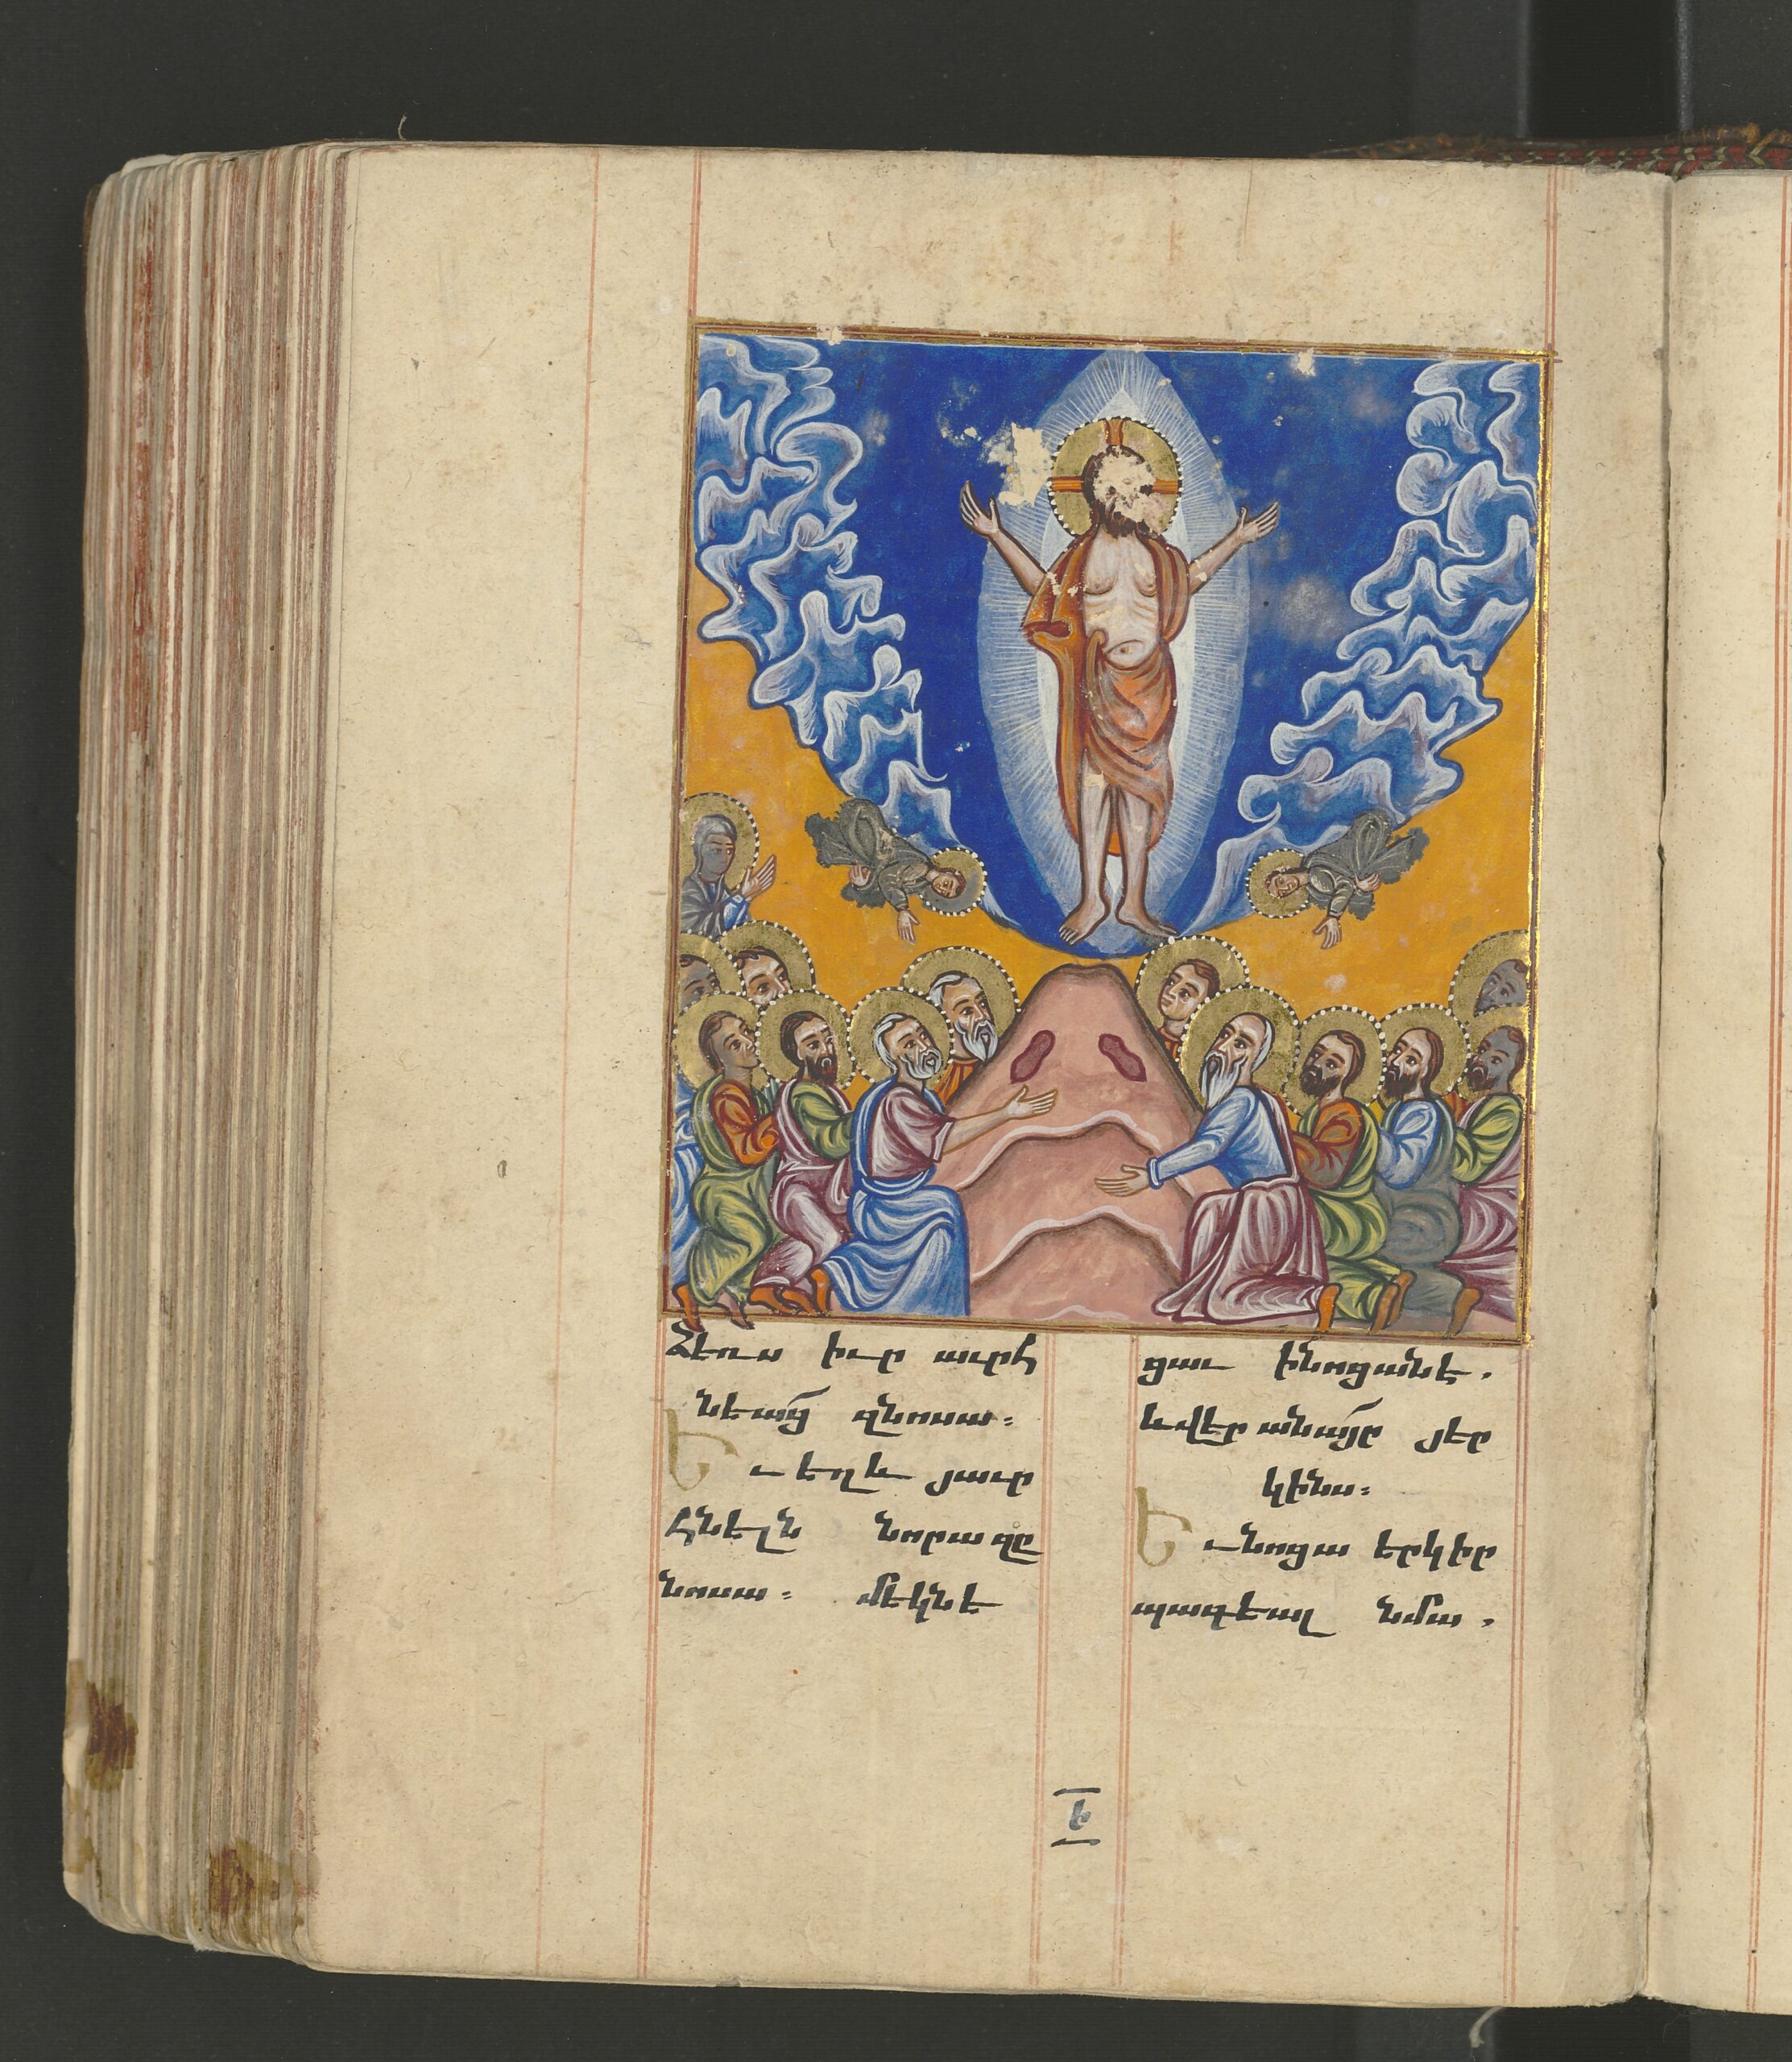 Ձեռս իւր աւրհ
նեաց զնոսա։
Ե ւ եղև յաւր
հնելն նորա զը
նոսա։ մեկնե
ցաւ ինոցանէ.
և վեր անայր յեր
կինս։
Ե ւ նոցա երկիր
պագեալ նմա.
Ե